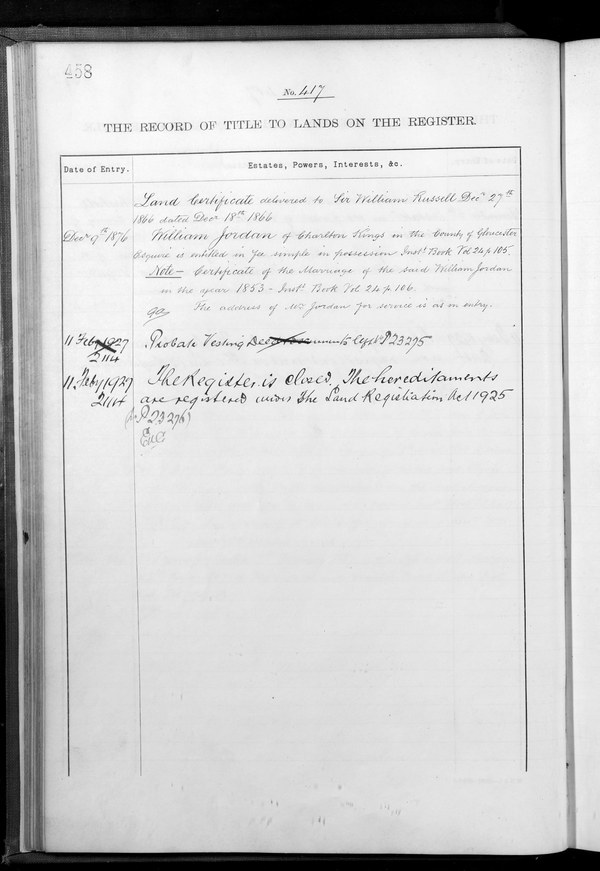 458
No. 417
THE RECORD OF TITLE TO LANDS ON THE REGISTER.
Date of Entry.
Estates, Powers, Interests, &c.
Land Certificate delivered to Sir William Russell Decr 27th
1866 dated Decr 18th 1866
Decr 17th 1876
William Jordan of Charlton Kings in the County of Gloucester
Esquire is entitled in fee simple in possession Instt. Book Vol 24 p 105.
Note — Certificate of the Marriage of the said William Jordan
in the year 1853 - Instt. Book Vol 24 p 106.
The address of Mr Jordan for service is as in entry.
11 Feby 1927
2114
Probate Vesting P23275
11 Feby 1927
2114
The Register is closed. The hereditaments
are registered under the Land Registration Act 1925
P 23275)